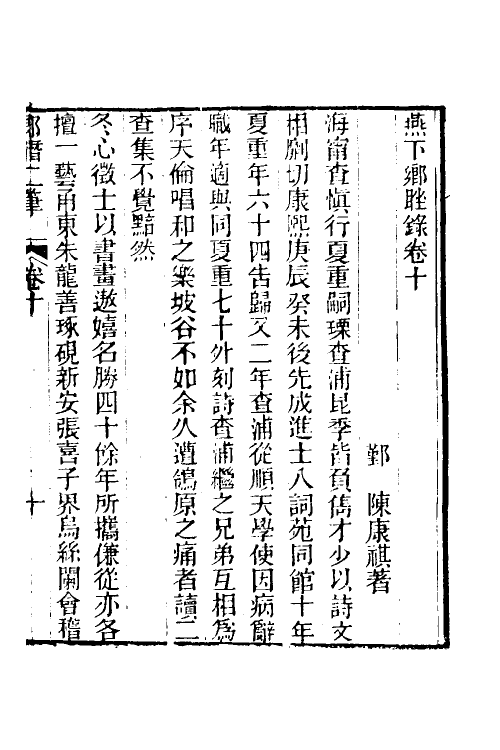 燕下鄉脞錄卷十
鄞 陳康祺著
海甯查慎行夏重嗣瑮查浦昆季皆負儁才少以詩文
相劘切康熙庚辰癸未後先成進士入詞苑同館十年
夏重年六十四告歸又二年查浦從順天學使因病辭
職年適與同夏重七十外刻詩查浦繼之兄弟互相為
序天倫唱和之樂坡谷不如余久遭鴒原之痛者讀二
查集不覺黯然
冬心徵士以書畫遨嬉名勝四十餘年所攜傔從亦各
擅一藝甬東朱龍善琢硯新安張喜子界烏絲闌會稽
郎潛二筆 卷十 十